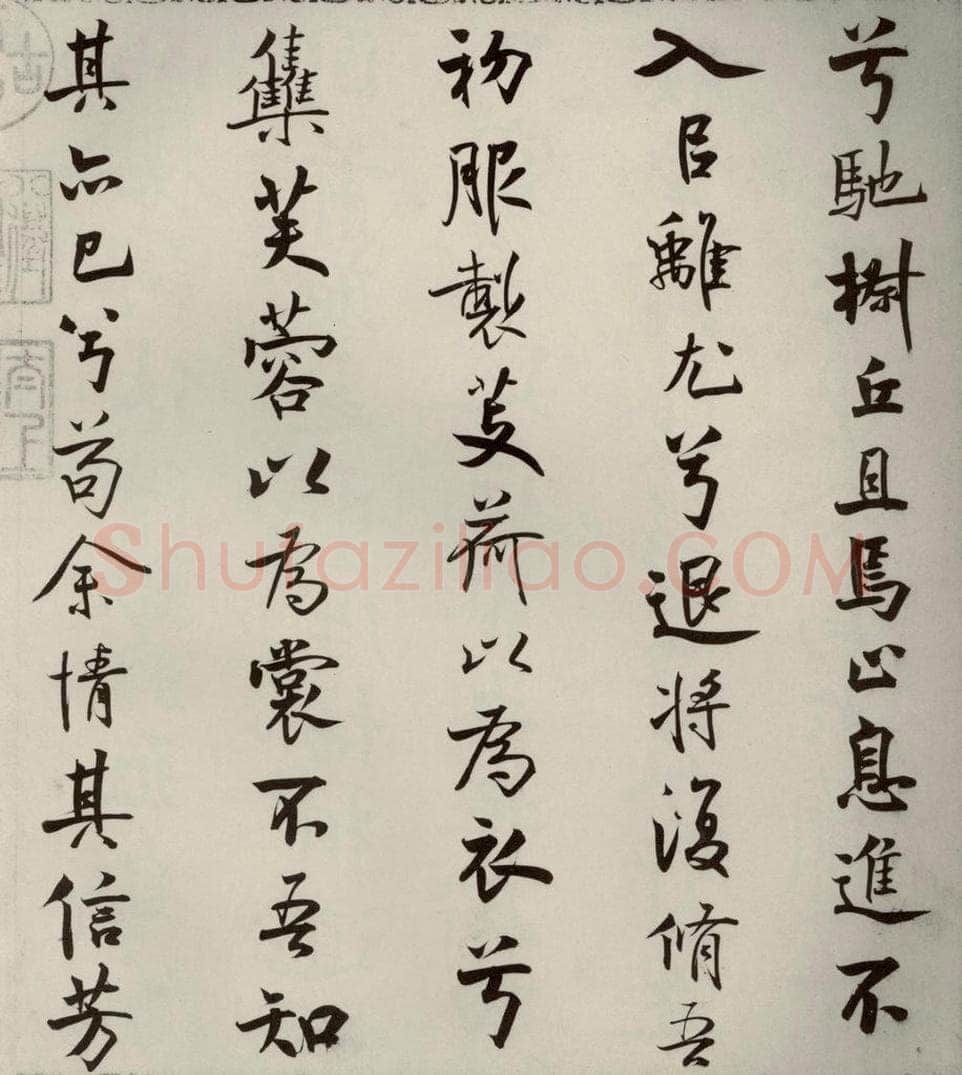 兮馳椒丘且焉止息進不
入㠯離尤兮退将復脩吾
初服製芰荷以為衣兮
雧芙蓉以為裳不吾知
其亦已兮苟余情其信芳
Shufaziliao.COM